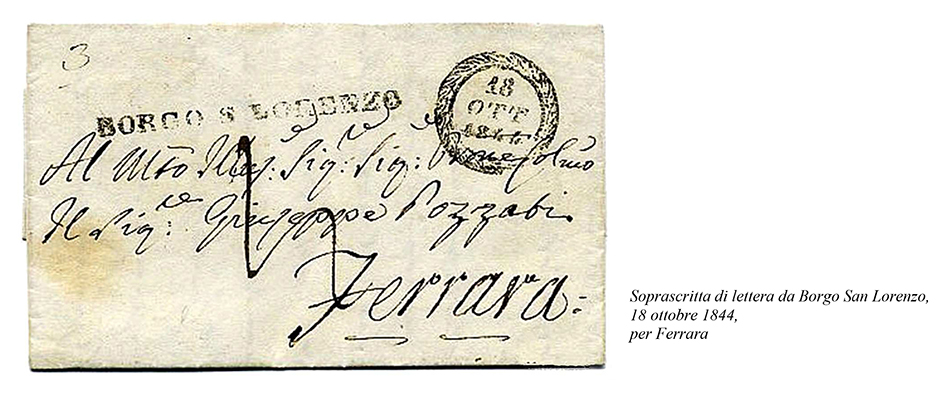 3
BORGO S LORENZO
18
OTT
1844
Al Mto Ill Sig: Sig:
Il Sig: Giuseppe Pozzati
Ferrara:
Soprascritta di lettera da Borgo San Lorenzo,
18 ottobre 1844,
per Ferrara